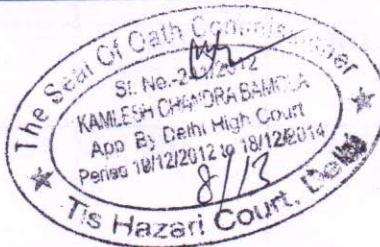 The Seal Of Oath Commissioner
Sl. No.-2
/2012
KAMLESH CHANDRA BAMOLA
App By Delhi High Court
Period 19/12/2012 to 18/12/2014
8/13
Tis Hazari Court, Delhi